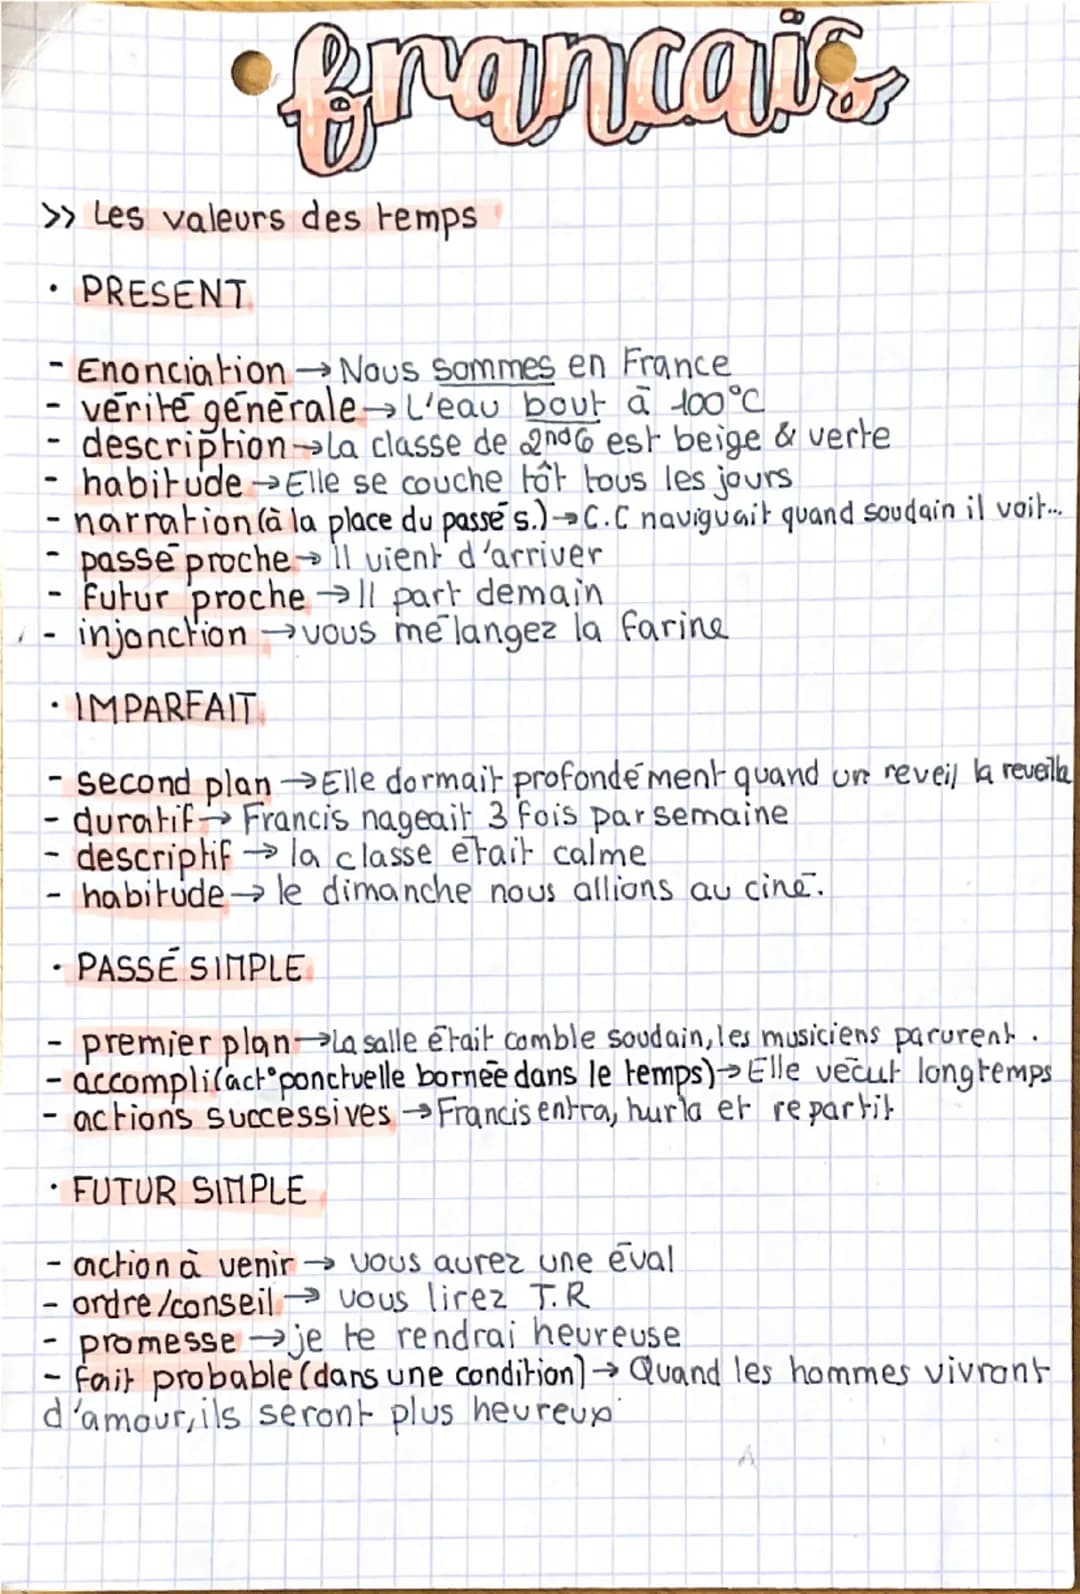 francais
>> Les valeurs des temps
· PRESENT
- Enonciation → Nous sommes en France
- vérité générale → L'eau bout à 100°C
- description → La classe de 2ndG est beige & verte
- habitude → Elle se couche tôt tous les jours
- narration (à la place du passé s.) → C.C naviguait quand soudain il voit...
- passé proche → Il vient d'arriver
- Futur proche → Il part demain
- injonction → vous mélangez la farine
· IMPARFAIT
- second plan → Elle dormait profondément quand un reveil la reveilla
- duratif → Francis nageait 3 fois par semaine
- descriptif → la classe était calme
- habitude → le dimanche nous allions au ciné.
· PASSÉ SIMPLE
- premier plan → La salle était comble soudain, les musiciens parurent.
- accompli (act° ponctuelle bornée dans le temps) → Elle vécut longtemps
- actions successives → Francis entra, hurla et repartit
· FUTUR SIMPLE
- action à venir → vous aurez une éval
- ordre/conseil → vous lirez T.R
- promesse → je te rendrai heureuse
- fait probable (dans une condition) → Quand les hommes vivront
d'amour, ils seront plus heureux